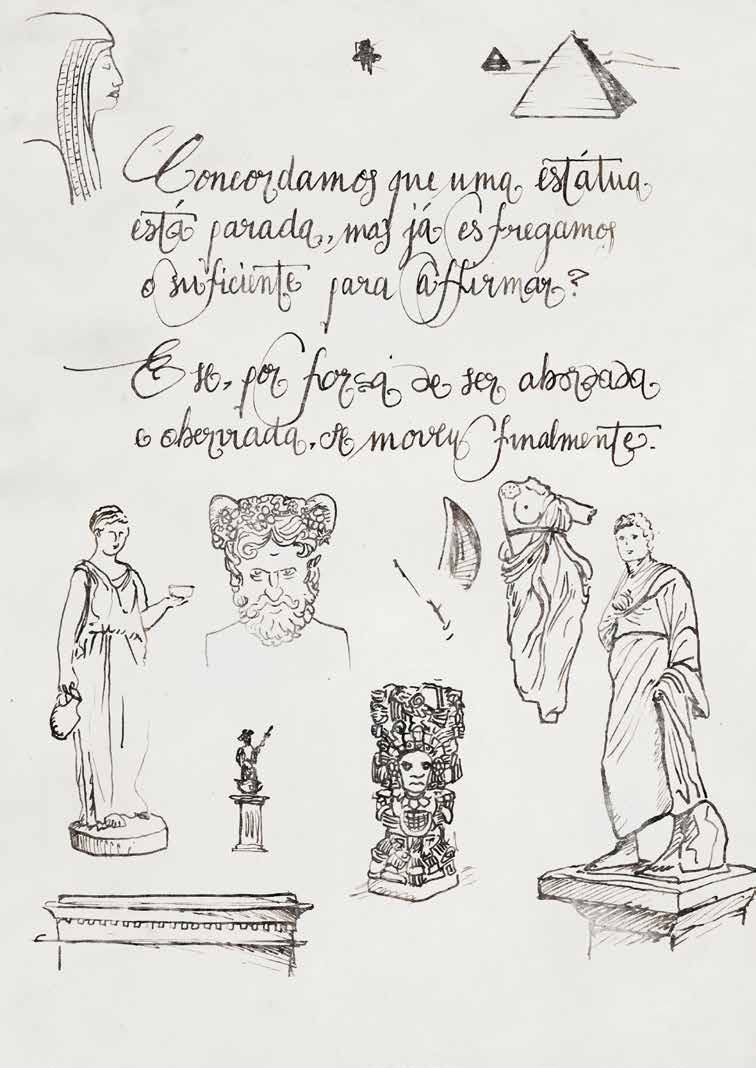 Concordamos que uma estátua
está parada, mas já esfregamos
o suficiente para affirmar?
E se, por força de ser abordada
e se moveu finalmente.